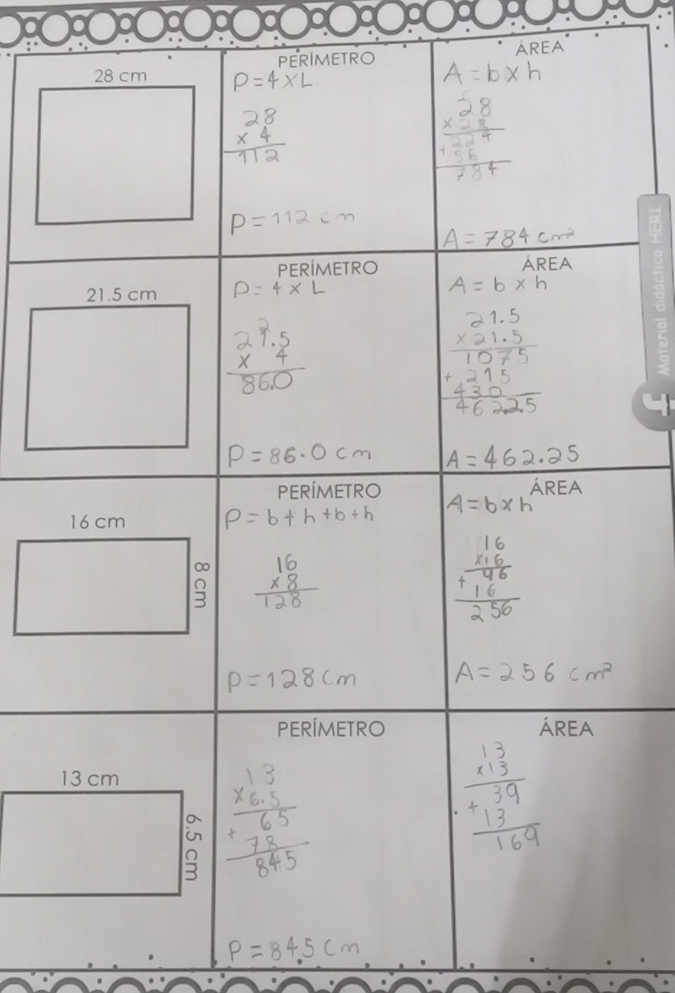 28 cm
PERÍMETRO
P=4×L
28
× 4
112
P=112 cm
ÁREA
A=b×h
28
× 28
224
+ 56
784
A=784 cm²
21.5 cm
PERÍMETRO
P=4×L
2
21.5
× 4
86.0
P=86.0 cm
ÁREA
A=b×h
21.5
×21.5
1075
+ 215
430
462.25
A=462.25
16 cm
8 cm
PERÍMETRO
P=b+h+b+h
16
×8
128
P=128 cm
ÁREA
A=b×h
16
×16
+ 96
16
256
A=256 cm²
13 cm
6.5 cm
PERÍMETRO
13
×6.5
65
+ 78
845
P=845 cm
ÁREA
13
×13
39
+ 13
169
Material didáctico HERI
f